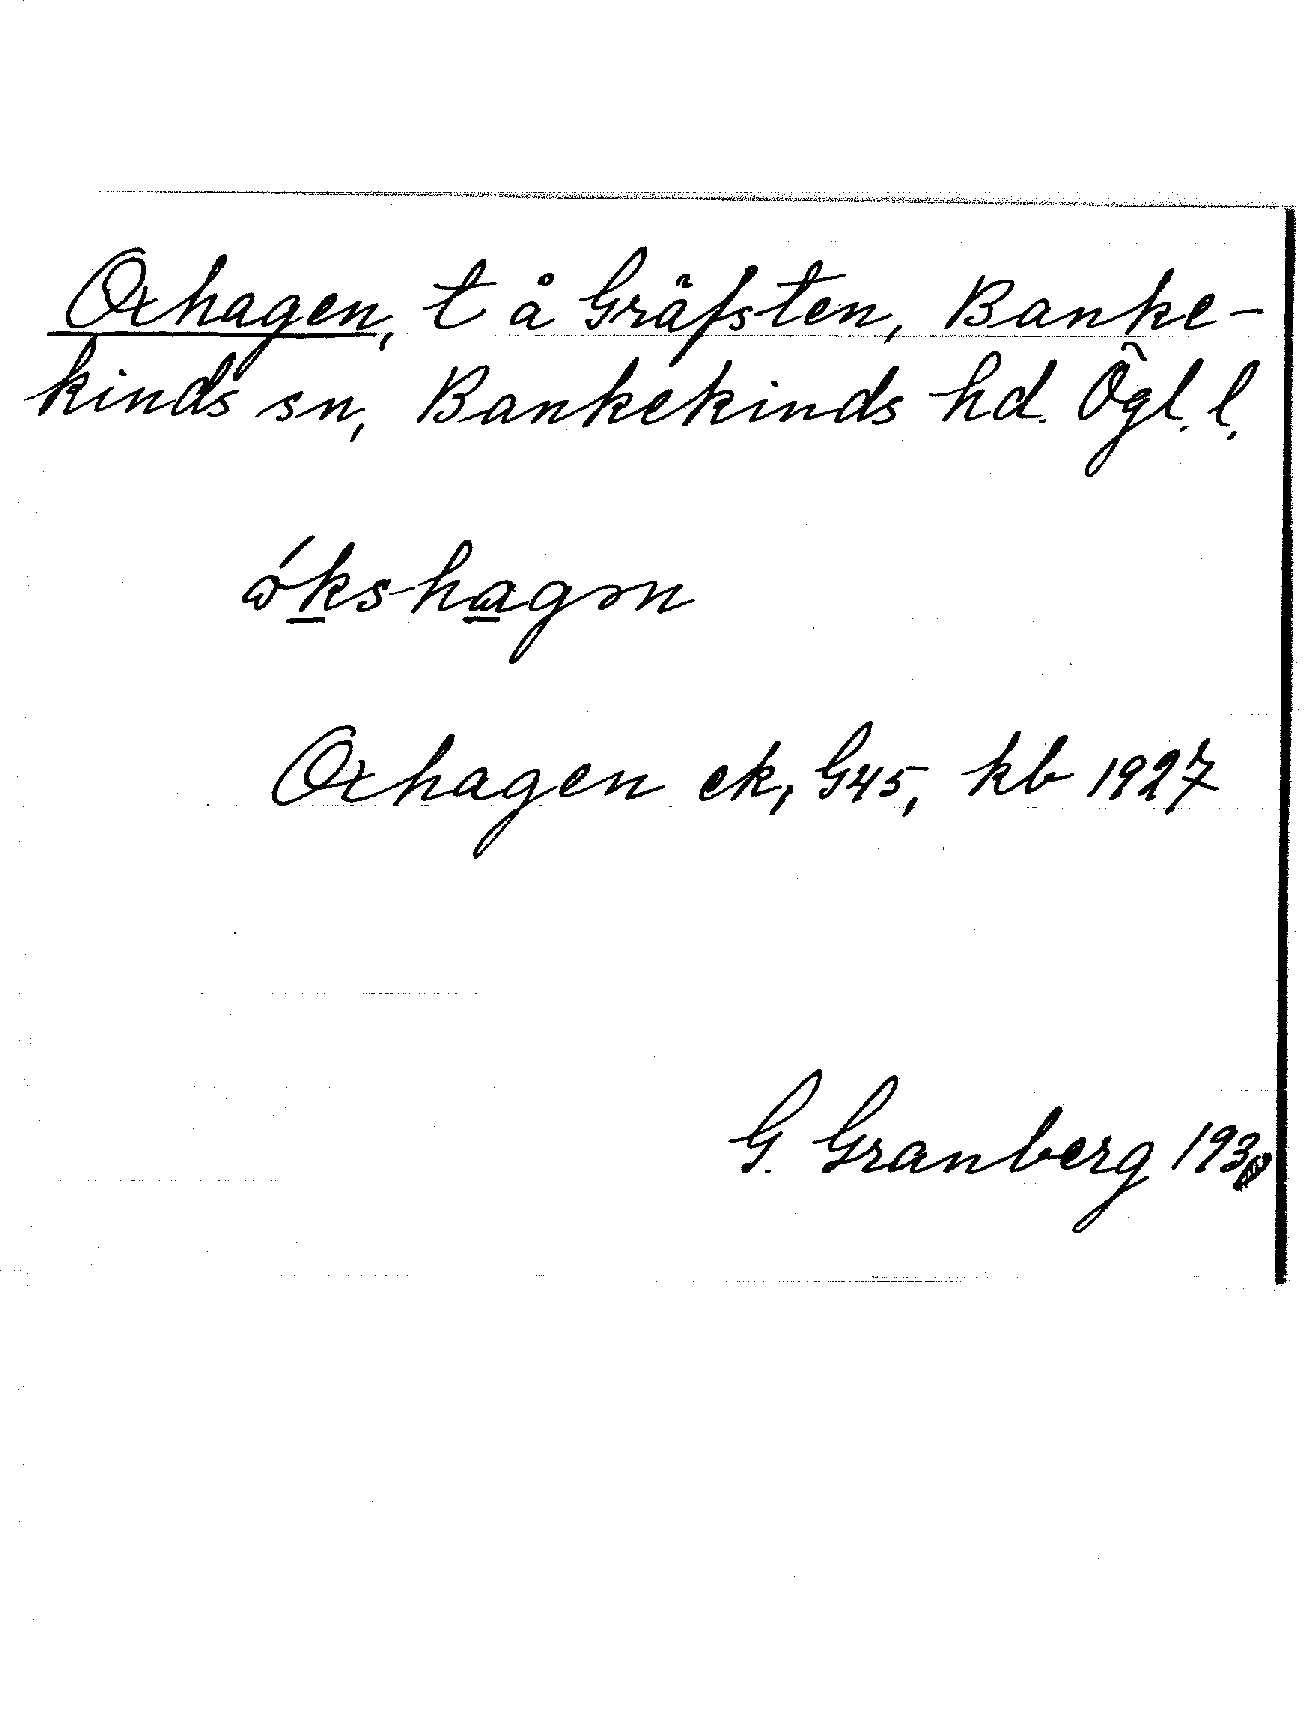 Oxhagen, t å Gräfsten, Banke-
kinds sn, Bankekinds hd. Ögl. l.
ókshagən
Oxhagen ek, G45, kb 1927
G. Granberg 1930